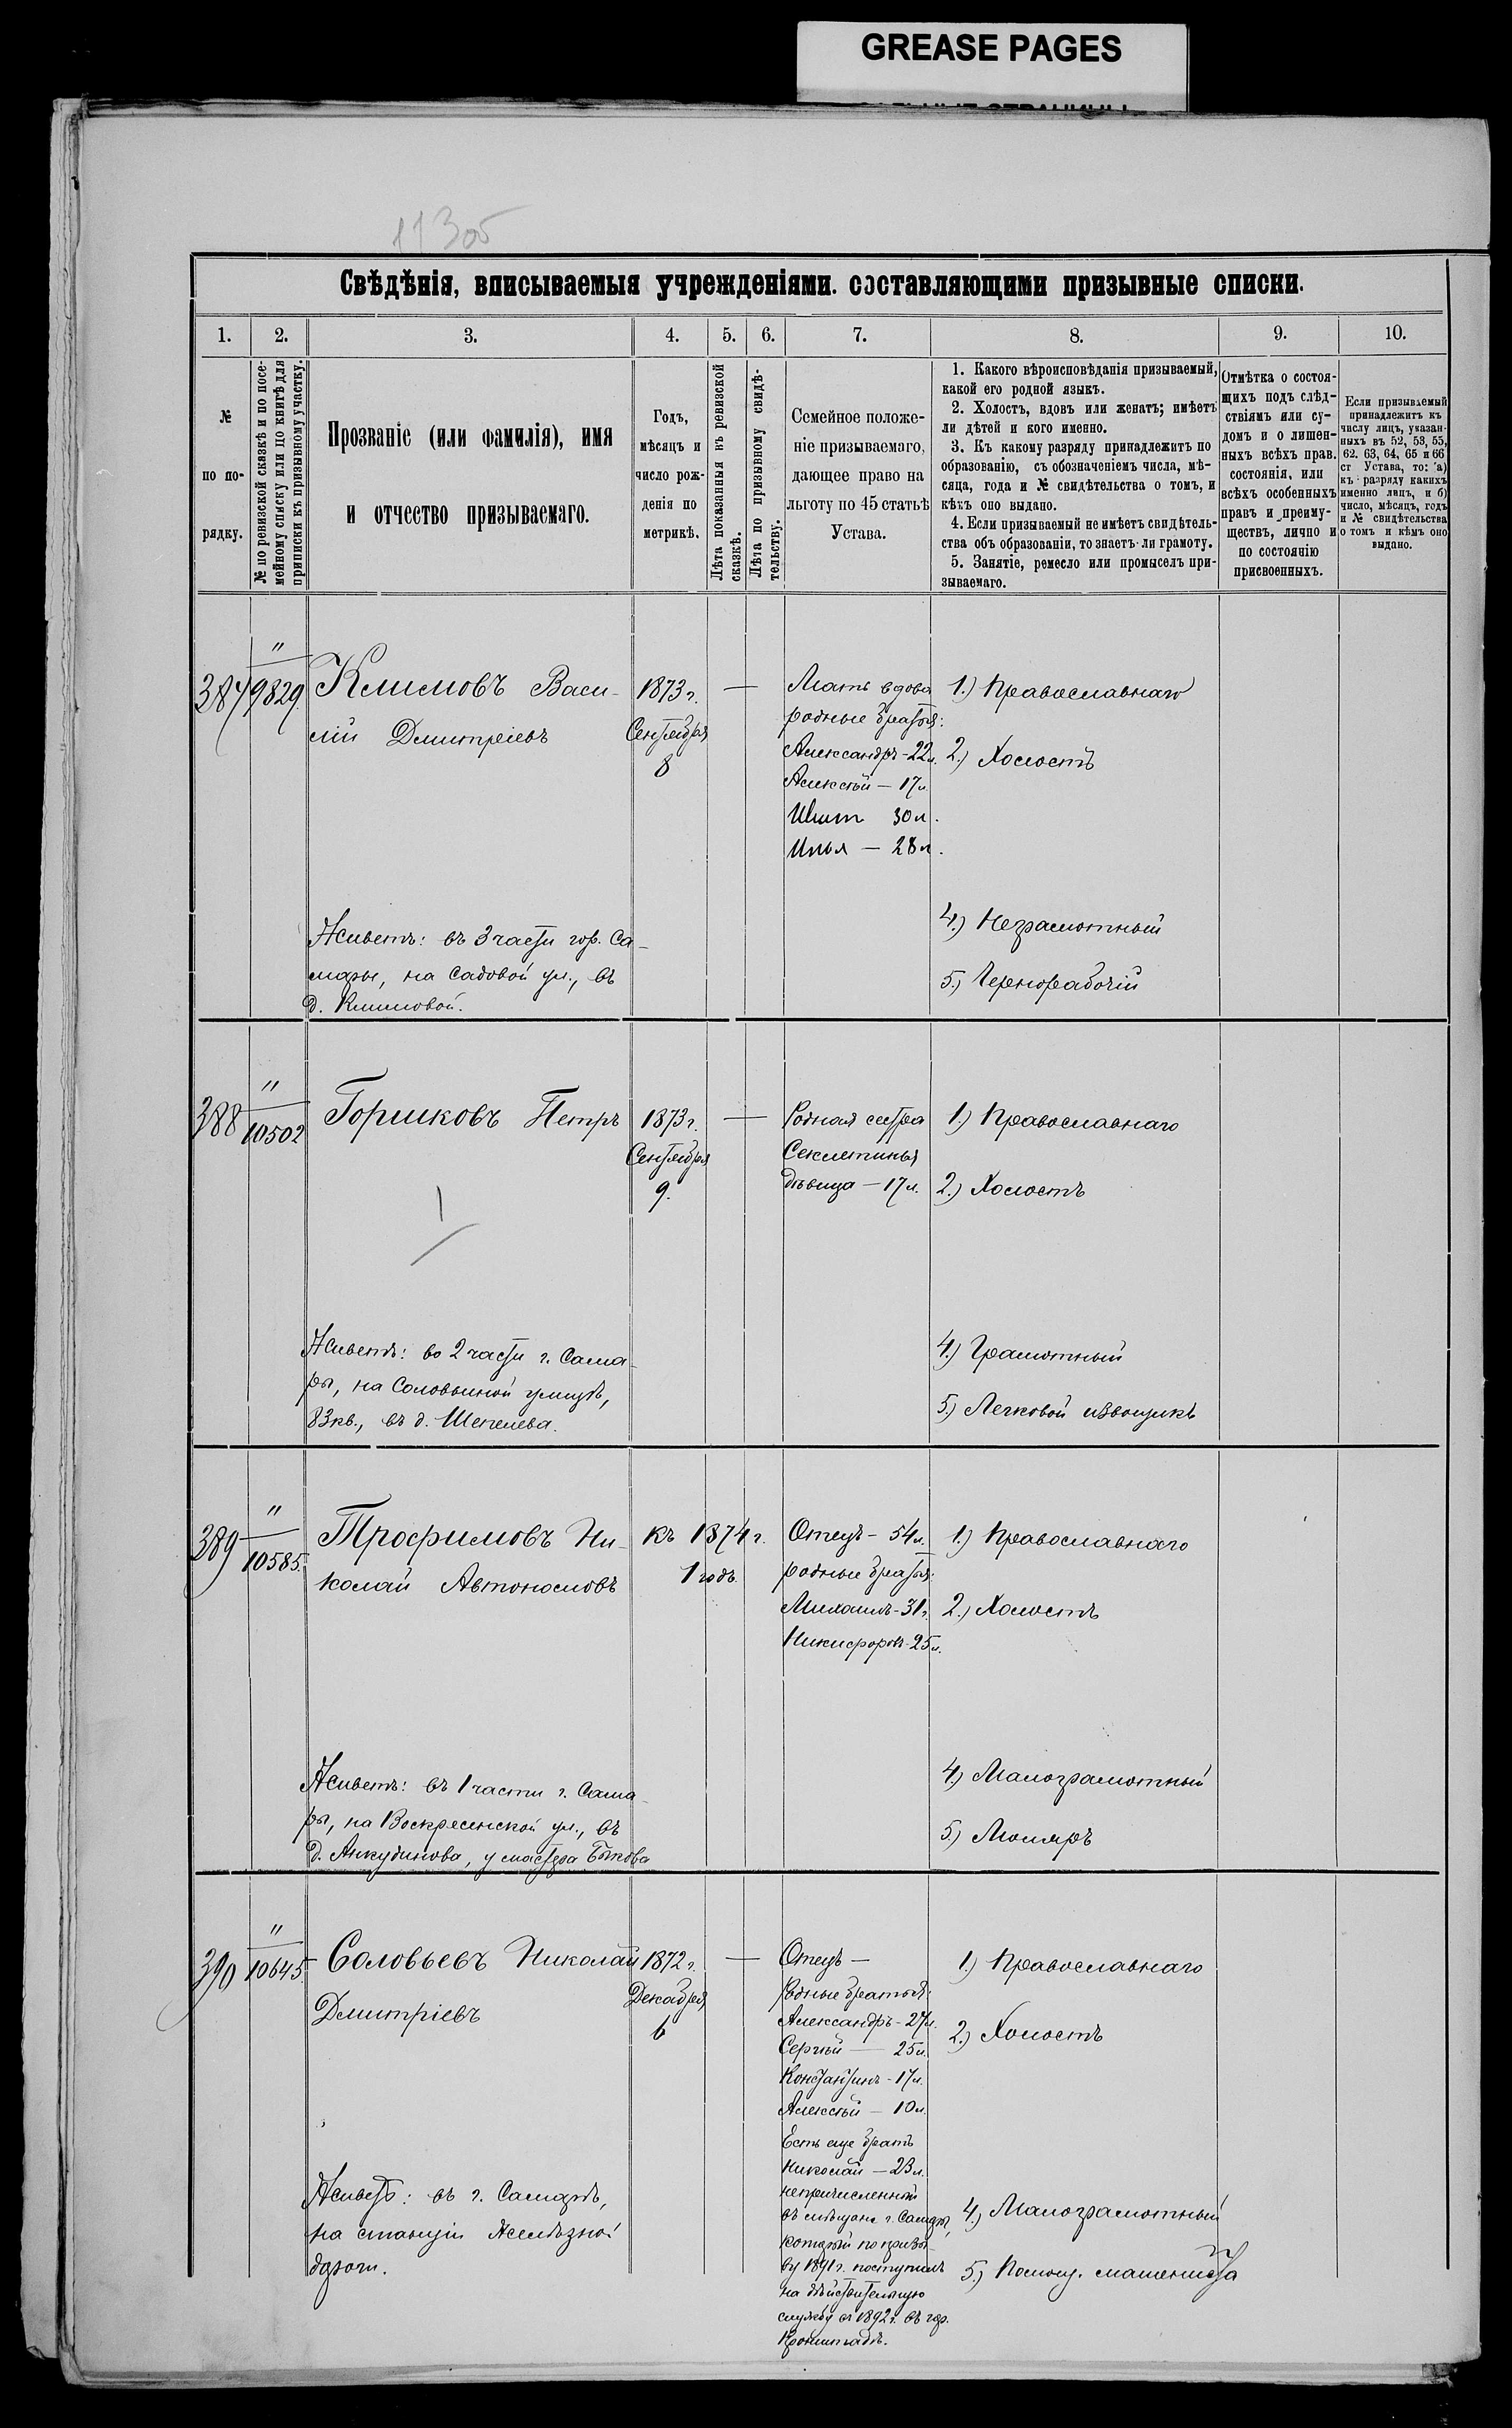 GREASE PAGES
Свѣдѣнія, вписываемыя учрежденіями. составляющими призывные списки.
1. 2. 3. 4. 5. 6. 7. 8. 9. 10.
№ по по-рядку.
№ по ревизской сказкѣ и по посе-
мейному списку или по книгѣ для
приписки къ призывному участку.
Прозваніе (или фамилія), имя
и отчество призываемаго.
Годъ,
мѣсяцъ и
число рож-
денія по
метрикѣ.
Лѣта показанныя къ ревизской
сказкѣ.
Лѣта по призывному свидѣ-
тельству.
Семейное положе-
ніе призываемаго,
дающее право на
льготу по 45 статьѣ
Устава.
1. Какого вѣроисповѣданія призываемый,
какой его родной языкъ.
2. Холостъ, вдовъ или женатъ; имѣетъ
ли дѣтей и кого именно.
3. Къ какому разряду принадлежитъ по
образованію, съ обозначеніемъ числа, мѣ-
сяца, года и № свидѣтельства о томъ, и
кѣмъ оно выдано.
4. Если призываемый не имѣетъ свидѣтель-
ства объ образованіи, то знаетъ-ли грамоту.
5. Занятіе, ремесло или промыселъ при-
зываемаго.
Отмѣтка о состоя-
щихъ подъ слѣд-
ствіямъ или су-
домъ и о лишен-
ныхъ всѣхъ прав.
состоянія, или
всѣхъ особенныхъ
правъ и преиму-
ществъ, лично и
по состоянію
присвоенныхъ.
Если призываемый
принадлежитъ къ
числу лицъ, указан-
ныхъ въ 52, 53, 55,
62. 63, 64, 65 и 66
ст Устава, то: а)
къ разряду какихъ
именно лицъ, и б)
число, мѣсяцъ, годъ
и № свидѣтельства
о томъ и кѣмъ оно
выдано.
387 " 9829.
Климовъ Васи-
лій Дмитреіевъ
1873 г.
Сентября
8
—
Мать вдова
родные братья:
Александръ - 22 л.
Алексѣй — 17 л.
30 л.
Илья — 28 л.
1.) Православнаго
2.) Холостъ
4.) Неграмотный
5.) Чернорабочій
Живетъ: въ 3 части гор. Са-
мары, на Садовой ул., въ
д. Климовой.
388 " 10502
Горшковъ Петръ
1873 г.
Сентября
9.
—
Родная сестра
Секлетинья
дѣвица — 17 л.
1.) Православнаго
2.) Холостъ
4.) Грамотный
5.) Легковой извощикъ
Живетъ: во 2 части г. Сама-
ры, на Соловьиной улицѣ,
83 кв., въ д. Шепелева.
389 " 10585.
Трофимовъ Ни-
колай Автономовъ
къ 1874 г.
1 годъ.
Отецъ - 54 л.
родные братья:
Михаилъ - 31 г.
Никифоръ - 25 л.
1.) Православнаго
2.) Холостъ
4.) Малограмотный
5.) Моляръ
Живетъ: въ 1 части г. Сама-
ры, на Воскресенской ул., въ
д. Анкудинова, у мастера Быкова
390 " 10645
Соловьевъ Николай
Дмитріевъ
1872 г.
Декабря
6
—
Отецъ —
Родные братья:
Александръ - 27 л.
Сергѣй — 25 л.
Константинъ - 17 л.
Алексѣй — 10 л.
Есть еще братъ
Николай — 23 л.
непричисленный
въ мѣщане г. Самары,
который по призы-
ву 1891 г. поступилъ
на дѣйствительную
службу съ 1892 г. въ гор.
Кронштадтъ.
1.) Православнаго
2.) Холостъ
4.) Малограмотный
5.) Помощ. машениста
Живетъ: въ г. Самарѣ,
на станціи желѣзной
дороги.